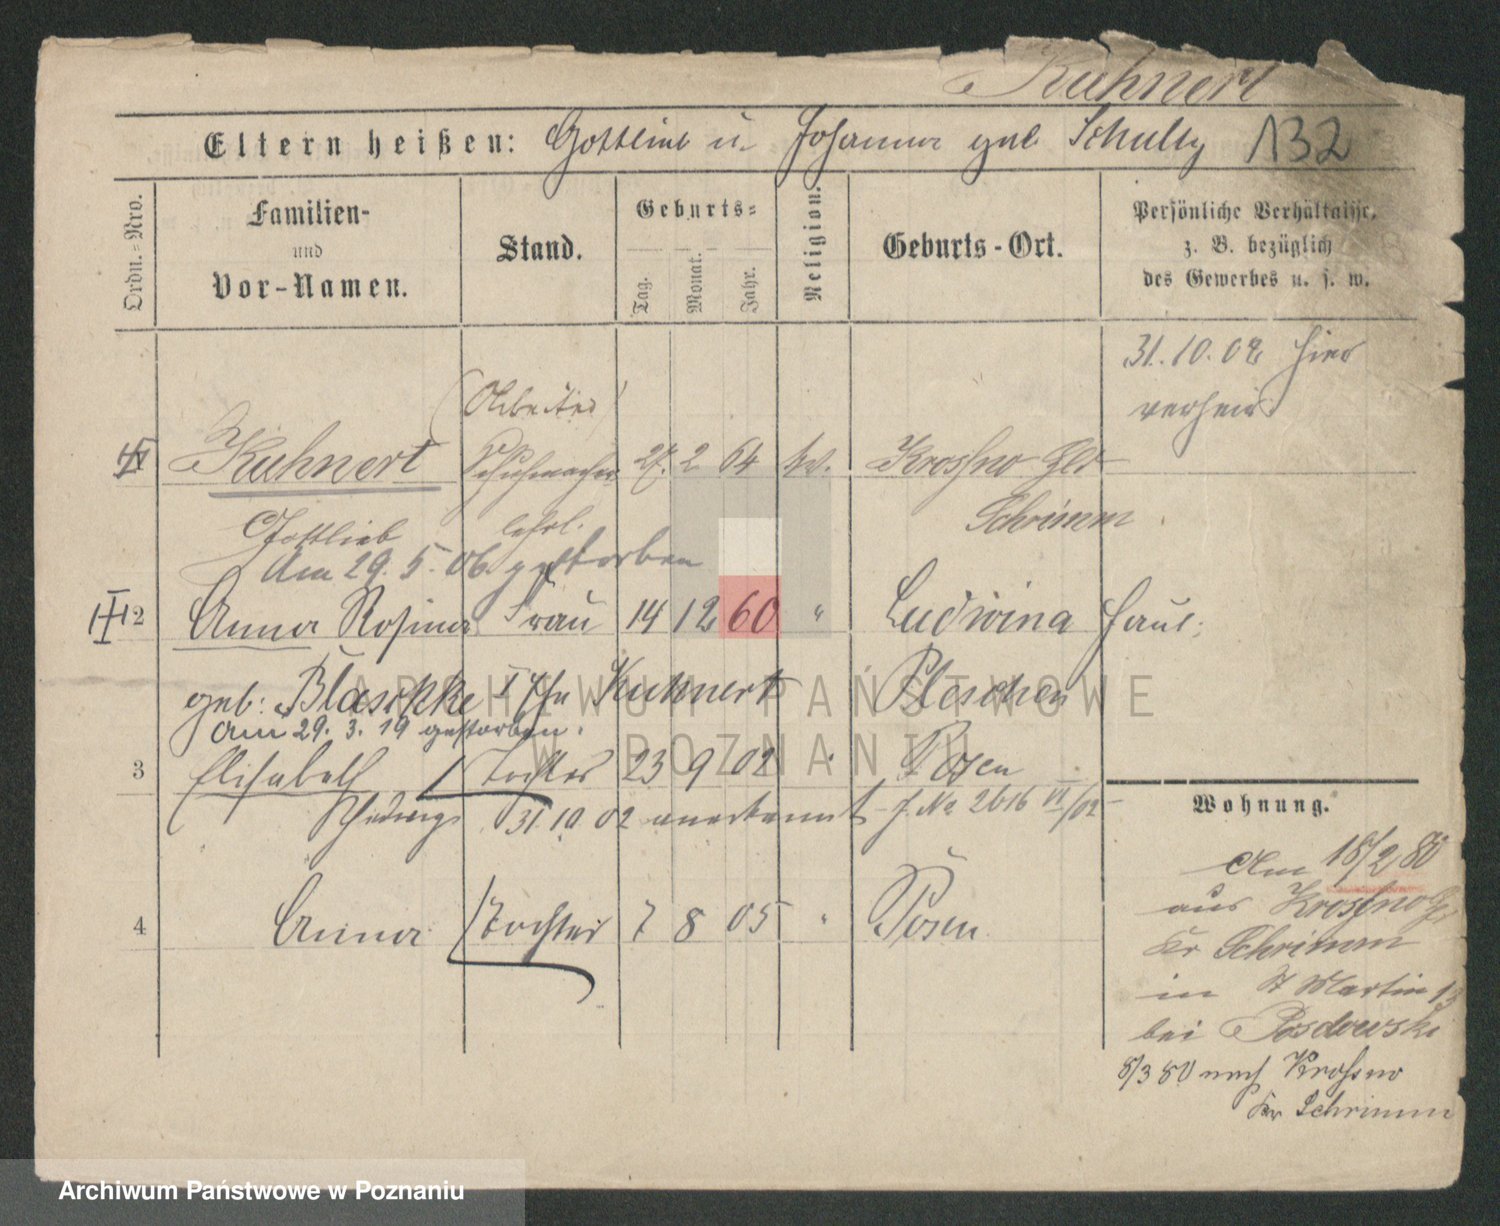 Kuhnert
Eltern heißen: Gottlieb u. Johanna geb Schulz 132
Ordn.-Nro.
Familien-
und
Vor-Namen.
Stand.
Geburts-
Tag.
Monat.
Jahr.
Religion.
Geburts-Ort.
Persönliche Verhältnisse,
z. B. bezüglich
des Gewerbes u. s. w.
31. 10. 02 hier
verheir.
(Arbeiter)
Kuhnert Schuhmacher 27. 2 64 ev. Krossno Hld
Gottlieb lehrl. Schrimm
Am 29. 5. 06. gestorben
2 Anna Rosina Frau 14 12 60 " Ludwina Haul.
geb: Blaschke Kuhnert Pleschen
am 29. 3. 19 gestorben.
3 Elisabeth Tochter 23 9 02 " Posen
Hedwig 31. 10. 02 anerkannt f. No 2616 VI/02
Wohnung.
4 Anna Tochter 7 8 05 " Posen
Am 18/2 80
aus Krossno
Kr Schrimm
in St Martin 13
bei Posdowski
8/3 80 nach Krossno
Kr Schrimm
ARCHIWUM PAŃSTWOWE
W POZNANIU
Archiwum Państwowe w Poznaniu